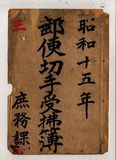 昭和十五年
郵便切手受払簿
庶務課
三